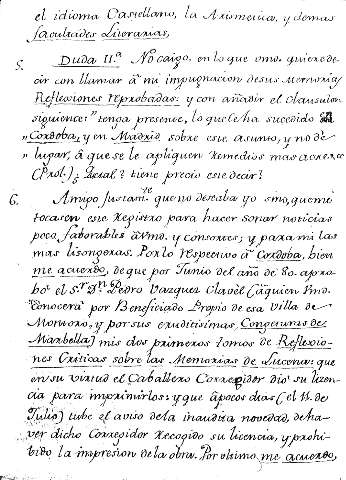 el idioma Castellano, la Arismetica, y demas
facultades Literarias,
5. Duda II.ª No caigo, en lo que vmd. quiere de-
cir con llamar â mi impugnacion de sus Memorias
Reflexiones reprobadas: y con añadir el clausulon
siguiente: "tenga presente, lo que le ha sucedido en
" Cordoba, y en Madrid sobre este asunto, y no de
" lugar, â que se le apliquen remedios mas acres
(Prol.)¿ Qual? tiene precio este decir?
6. Amigo justam.te que no deseaba yo smo, que me
tocasen este Registro para hacer sonar noticias
poco faborables â vmd. y consortes; y para mi las
mas lisongeras. Por lo respectivo â Cordoba, bien
me acuerdo, de que por Junio del año de 80. apro-
bo el S.r D.n Pedro Vazquez Clavél (â quien Vmd.
conocerâ por Beneficiado Propio de esa Villa de
Montoro, y por sus eruditisimas, Congeturas de
Marbella) mis dos primeros tomos de Reflexio-
nes Criticas sobre las Memorias de Lucena: que
en su virtud el Caballero Corregidor dio su licen-
cia para imprimirlos: y que â pocos dias (el 11. de
Julio) tube el aviso de la inaudita novedad, de ha-
ver dicho Corregidor recogido su licencia, y prohi-
bido la impresion de la obra. Por ultimo, me acuerdo,